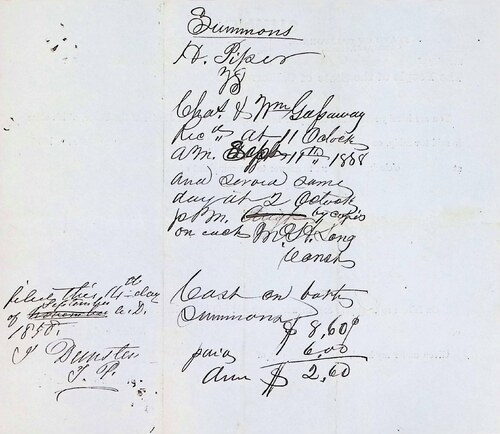 Summons
H. Piper
vs
Chas. & Wm Gassaway
Rec'd at 11 Oclock
A.M. Sept 11th 1858
and served same
day at 2 Oclock
P.M. by copie
on each M. H. Long
Const
Cost on both
Summons
$ 8,60
paid 6,00
Am $ 2,60
Filed this 14th day
of September A.D.
1858.
J Dunster
J. P.